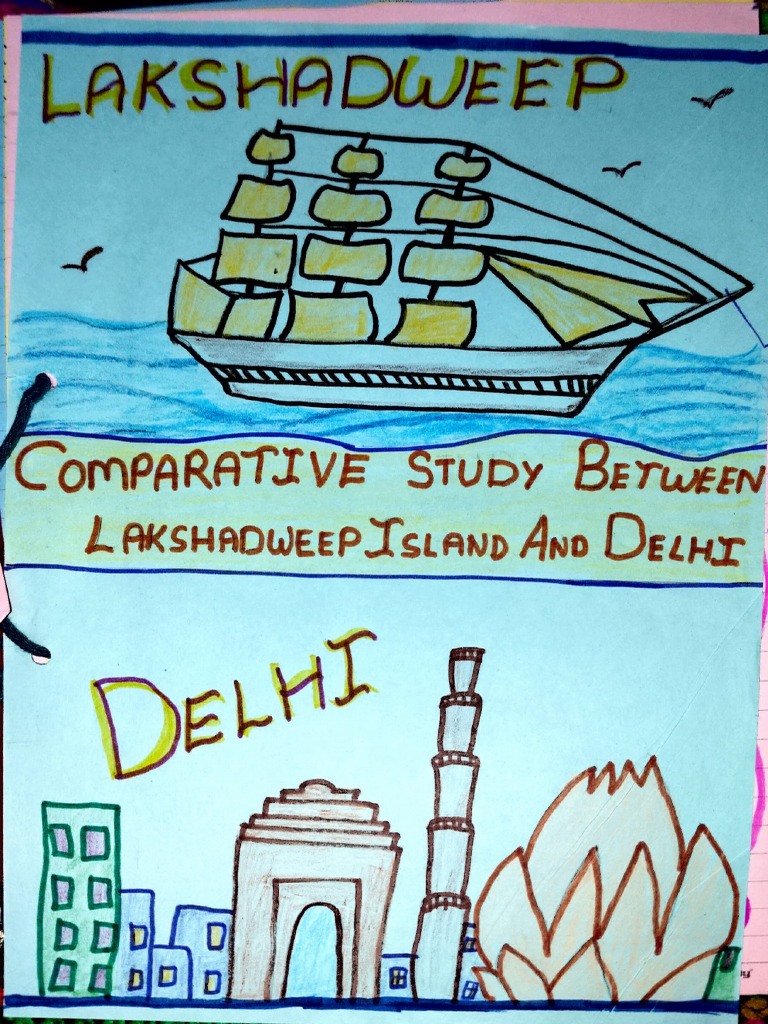 LAKSHADWEEP
COMPARATIVE STUDY BETWEEN
LAKSHADWEEP ISLAND AND DELHI
DELHI